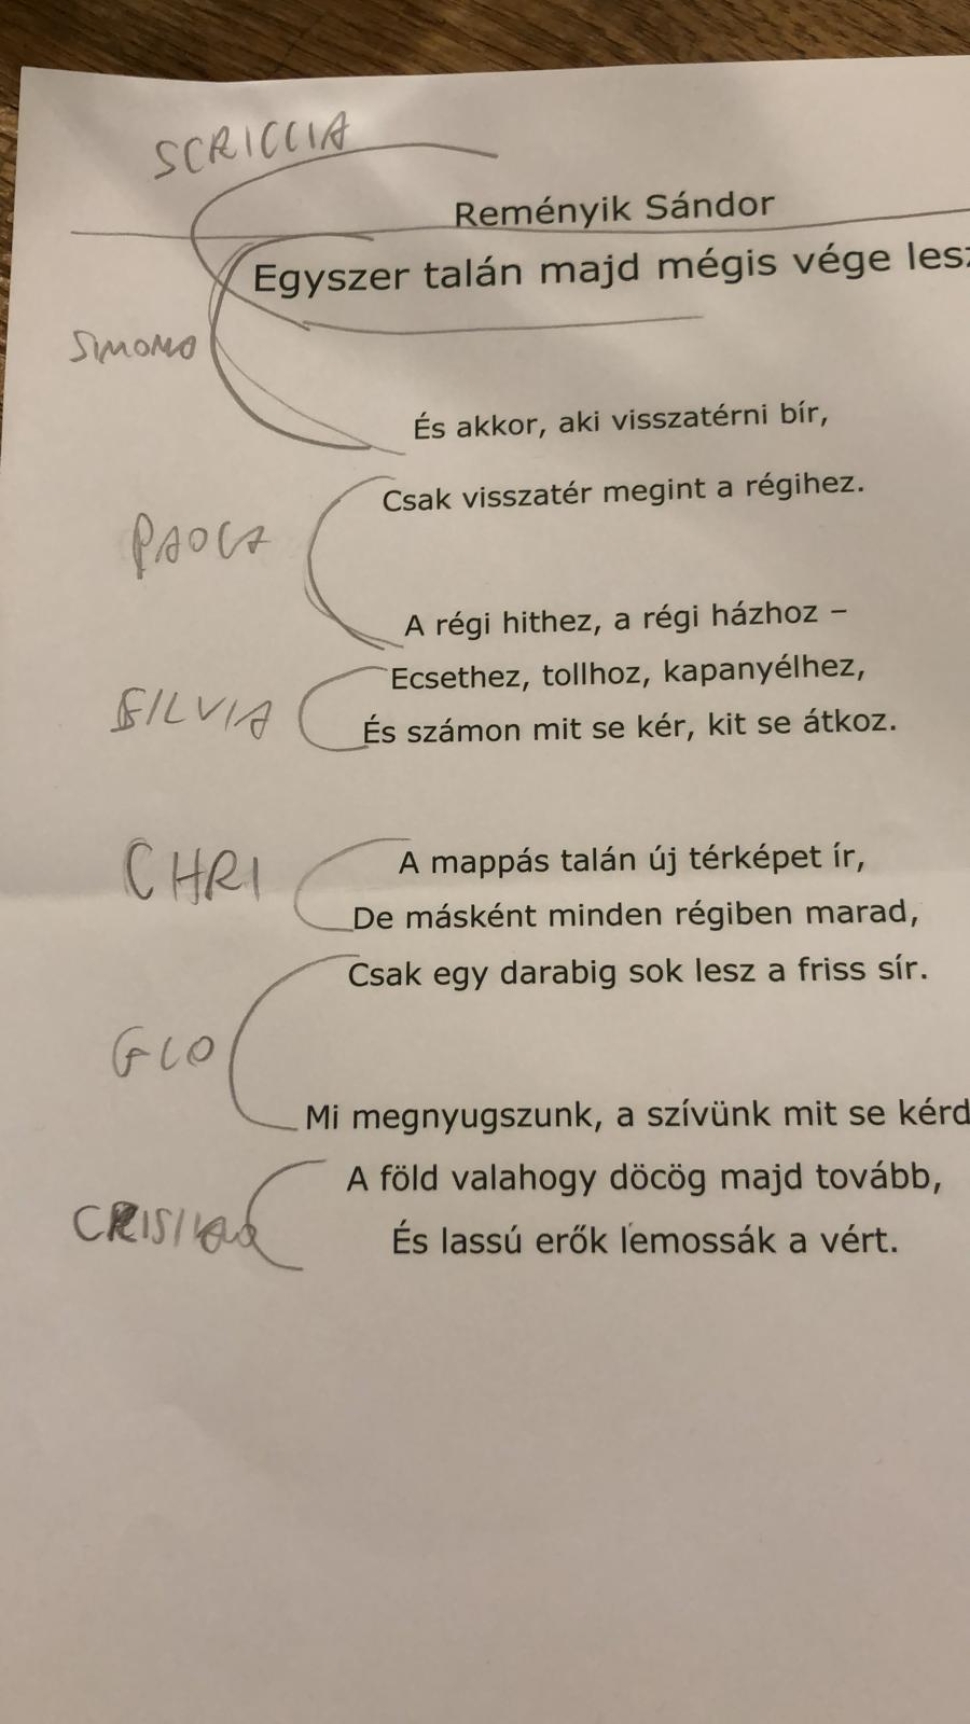 SCRICCIA
Reményik Sándor
Egyszer talán majd mégis vége lesz
SIMONA
És akkor, aki visszatérni bír,
Csak visszatér megint a régihez.
PAOLA
A régi hithez, a régi házhoz –
Ecsethez, tollhoz, kapanyélhez,
SILVIA
És számon mit se kér, kit se átkoz.
CHRI
A mappás talán új térképet ír,
De másként minden régiben marad,
Csak egy darabig sok lesz a friss sír.
GLO
Mi megnyugszunk, a szívünk mit se kérd
A föld valahogy döcög majd tovább,
És lassú erők lemossák a vért.